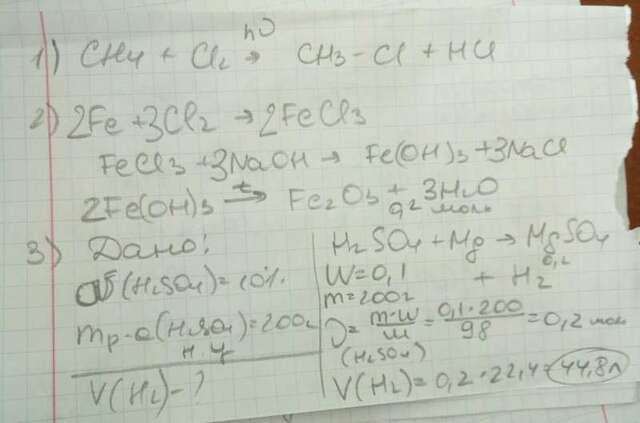 1) CH4 + Cl2 →hυ CH3 – Cl + HCl
2) 2Fe + 3Cl2 → 2FeCl3
FeCl3 + 3NaOH → Fe(OH)3 + 3NaCl
2Fe(OH)3 →t Fe2O3 + 3H2O
3) Дано:
ω(H2SO4) = 10%.
mр-а(H2SO4) = 200г
н.у
V(H2) – ?
0,2 моль
H2SO4 + Mg → MgSO4
0,2
+ H2
W = 0,1
m = 200г
υ = m·w/M = 0,1·200/98 = 0,2 моль
(H2SO4)
V(H2) = 0,2·22,4 = 44,8л